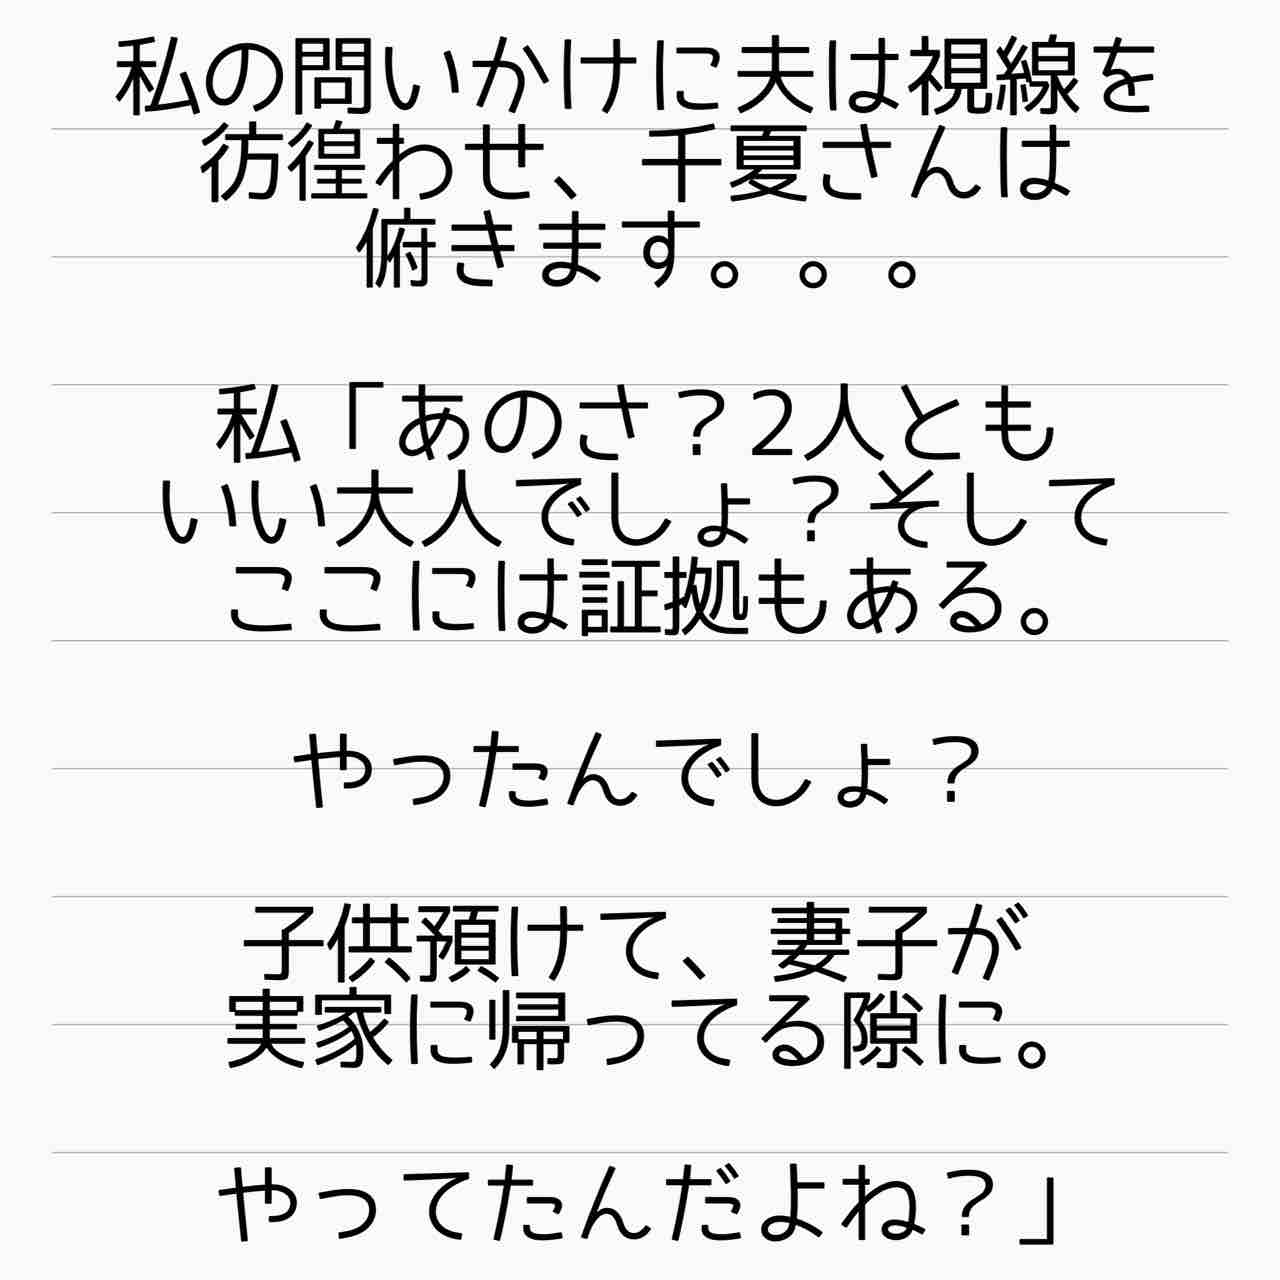 私の問いかけに夫は視線を
彷徨わせ、千夏さんは
俯きます。。。
私「あのさ？2人とも
いい大人でしょ？そして
ここには証拠もある。
やったんでしょ？
子供預けて、妻子が
実家に帰ってる隙に。
やってたんだよね？」